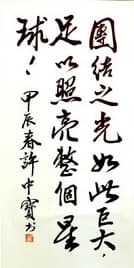 團結之光如此巨大，
足以照亮整個星
球！甲辰春許中寶书